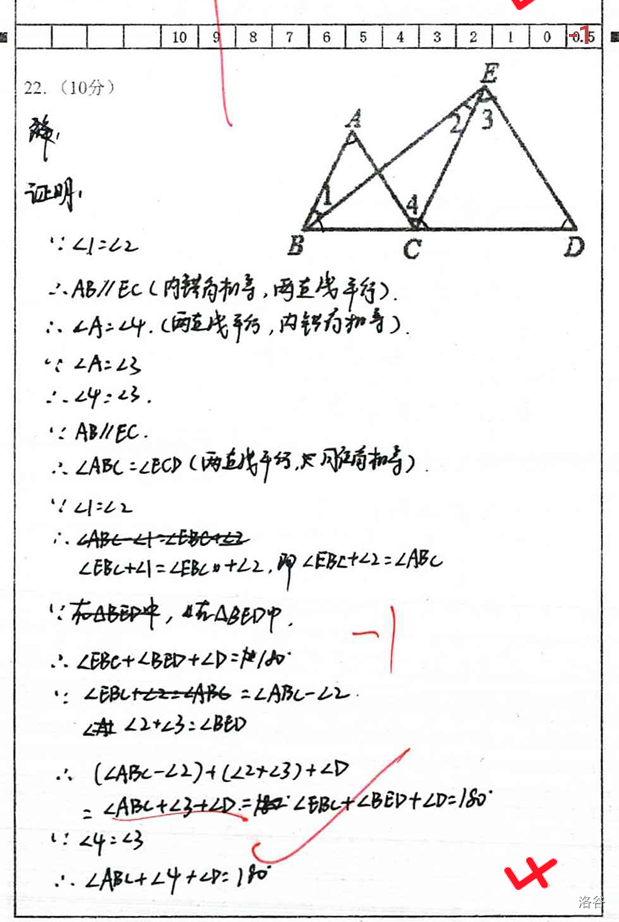 10 9 8 7 6 5 4 3 2 1 0 0.5
-1
22. （10分）
A
E
2
3
1
4
B
C
D
证明:
∵ ∠1=∠2
∴ AB∥EC (内错角相等, 两直线平行).
∴ ∠A=∠4. (两直线平行, 内错角相等).
∵ ∠A=∠3
∴ ∠4=∠3.
∵ AB∥EC.
∴ ∠ABC=∠ECD (两直线平行, 同位角相等).
∵ ∠1=∠2
∴ ∠ABC-∠1=∠EBC+∠2
∠EBC+∠1=∠EBC+∠2, 即 ∠EBC+∠2=∠ABC
∵ 在△BED中, 在△BED中,
-1
∴ ∠EBC+∠BED+∠D=180°
∵ ∠EBC+∠2=∠ABC =∠ABC-∠2.
∠2+∠3=∠BED
∴ (∠ABC-∠2)+(∠2+∠3)+∠D
=∠ABC+∠3+∠D=∠EBC+∠BED+∠D=180°
∵ ∠4=∠3
∴ ∠ABC+∠4+∠D=180°
洛谷